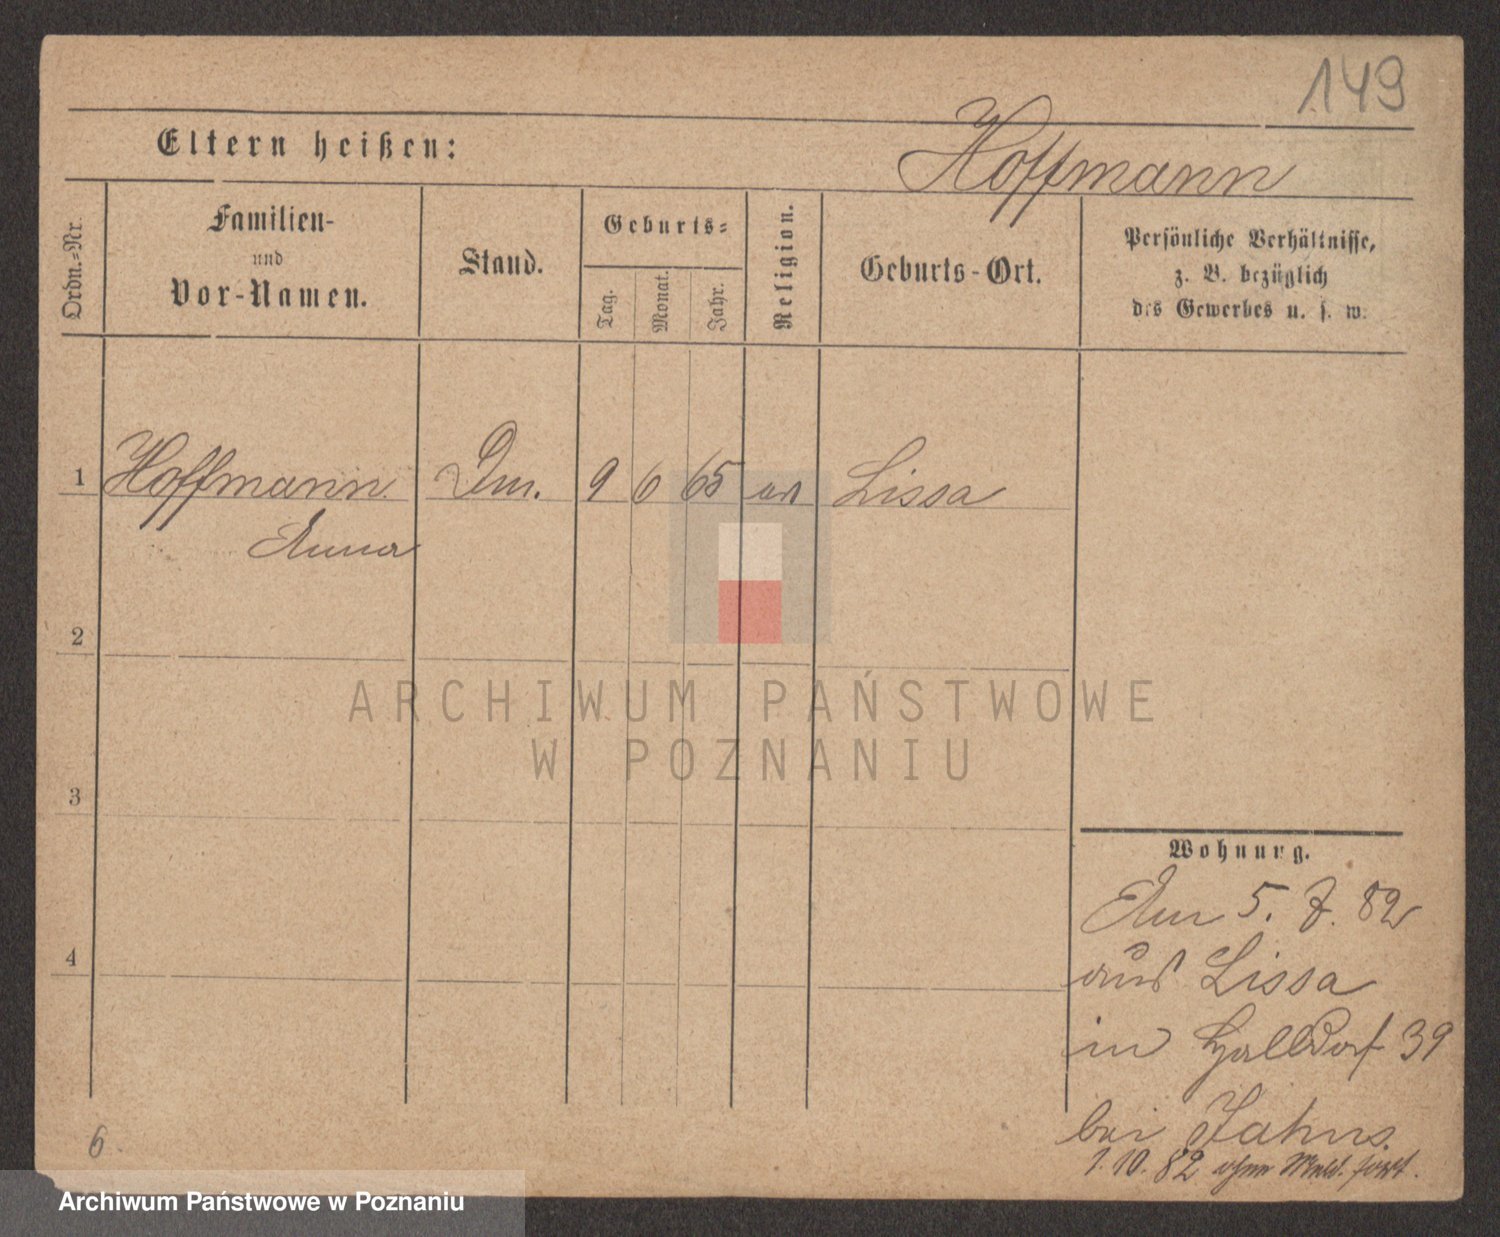 149
Eltern heißen:
Hoffmann
Ordn.-Nr.
Familien-
und
Vor-Namen.
Stand.
Geburts-
Tag.
Monat.
Jahr.
Religion.
Geburts-Ort.
Persönliche Verhältnisse,
z. B. bezüglich
des Gewerbes u. s. w.
1 Hoffmann 9 6 65 Lissa
Anna
2
3
4
ARCHIWUM PAŃSTWOWE
W POZNANIU
Wohnung.
Am 5. 7. 82
aus Lissa
in Halldorf 39
bei Jahns
1. 10. 82 ohne Meld. fort.
6.
Archiwum Państwowe w Poznaniu